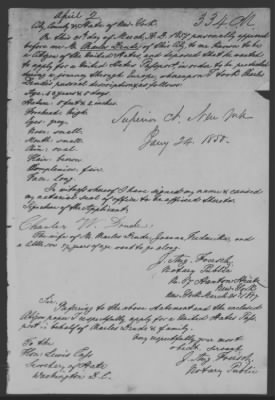 April 2
334 M
City, County & State of New York.
On this 31st day of March A.D. 1857 personally appeared
before me Mr Charles Drude of this City, to me known to be
a Citizen of the United States, and deposed that he wanted
to apply for a United States Passport in order to be protected
during a journey through Europe, whereupon I took Charles
Drude's personal description as follows:
Age:
Stature: 5 feet 2 inches.
Forehead: high
Eyes: gray.
Nose: small.
Mouth: small.
Chin: oval.
Hair: brown
Complexion: fair
Face: long.
Superior Ct. New York
Jany 24. 1850.
In witness whereof I have signed my name & caused
my notarial seal of office to be affixed
Signature of the Applicant:
Charles W. Drude.
The wife of Mr Charles Drude,
a little son years of age want to go along.
J. Aug.
Notary Public
New York
New York March 31st 1857
Sir,
Referring to the above statement and the enclosed
Citizen paper I respectfully apply for a United States Pass
port in behalf of Charles Drude & family.
Very respectfully your most
obedt. servant
J. Aug.
Notary Public
To the
Hon. Lewis Cass
Secretary of State
Washington D.C.